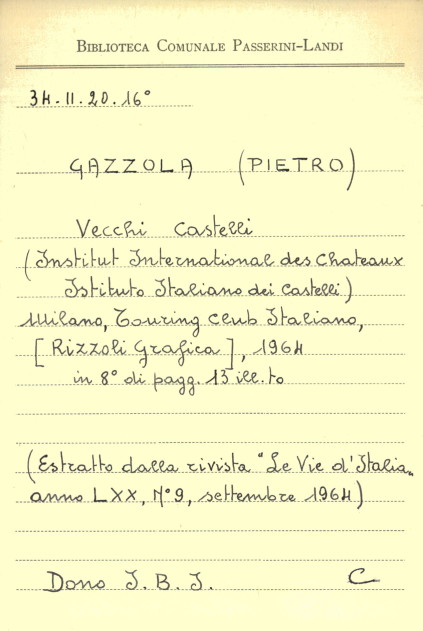 BIBLIOTECA COMUNALE PASSERINI-LANDI
34.II.20.16°
GAZZOLA (PIETRO)
Vecchi Castelli
(Institut International des Chateaux
Istituto Italiano dei Castelli)
Milano, Touring Club Italiano,
[Rizzoli Grafica], 1964
in 8° di pagg. 13 ill.to
(Estratto dalla rivista "Le Vie d'Italia"
anno LXX, N°9, settembre 1964)
Dono I.B.I. C